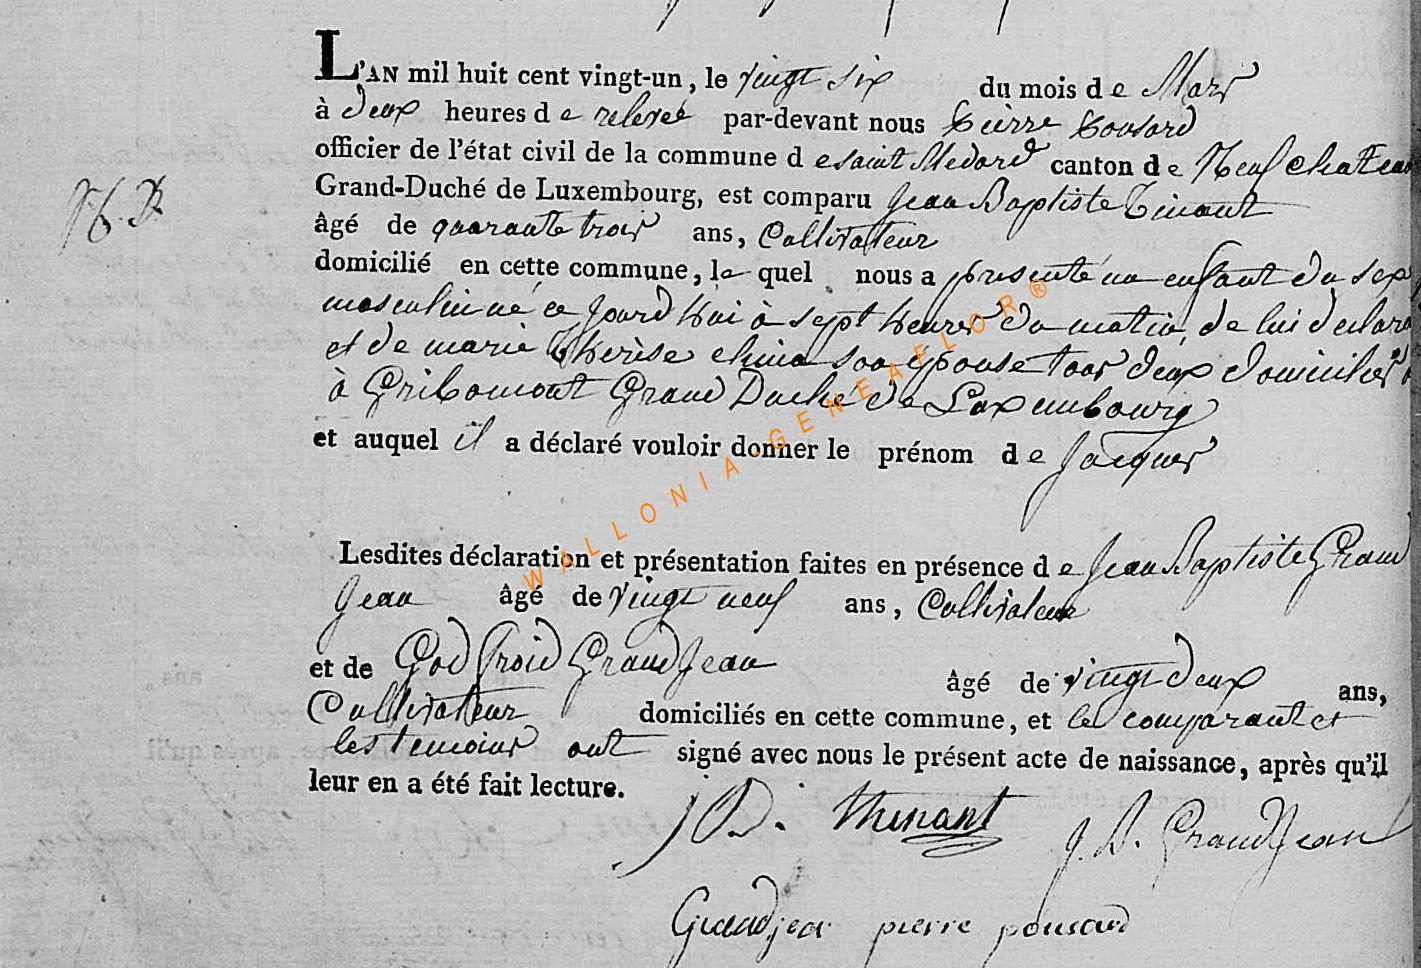 L'AN mil huit cent vingt-un, le vingt six du mois de Mars
à deux heures de relevée par-devant nous Pierre Ponsard
officier de l'état civil de la commune de Saint Medard canton de Neufchateau
Grand-Duché de Luxembourg, est comparu Jean Baptiste Tinant
âgé de quarante trois ans, Cultivateur
domicilié en cette commune, le quel nous a presenté un enfant du sex
masculin né ce jourd'hui à sept heures du matin, de lui declara
et de marie therèse china son épouse tous deux domiciliés
à Gribomont Grand Duché de Luxembourg
et auquel il a déclaré vouloir donner le prénom de Jacques
Lesdites déclaration et présentation faites en présence de Jean Baptiste Grand
Jean âgé de vingt neuf ans, Cultivateur
et de Godfroid GrandJean âgé de vingt deux ans,
Cultivateur domiciliés en cette commune, et le comparant et
les temoins ont signé avec nous le présent acte de naissance, après qu'il
leur en a été fait lecture.
J B. thinant J. B. GrandJean
Grandjean pierre ponsard
WALLONIA-GENEAFLOR®